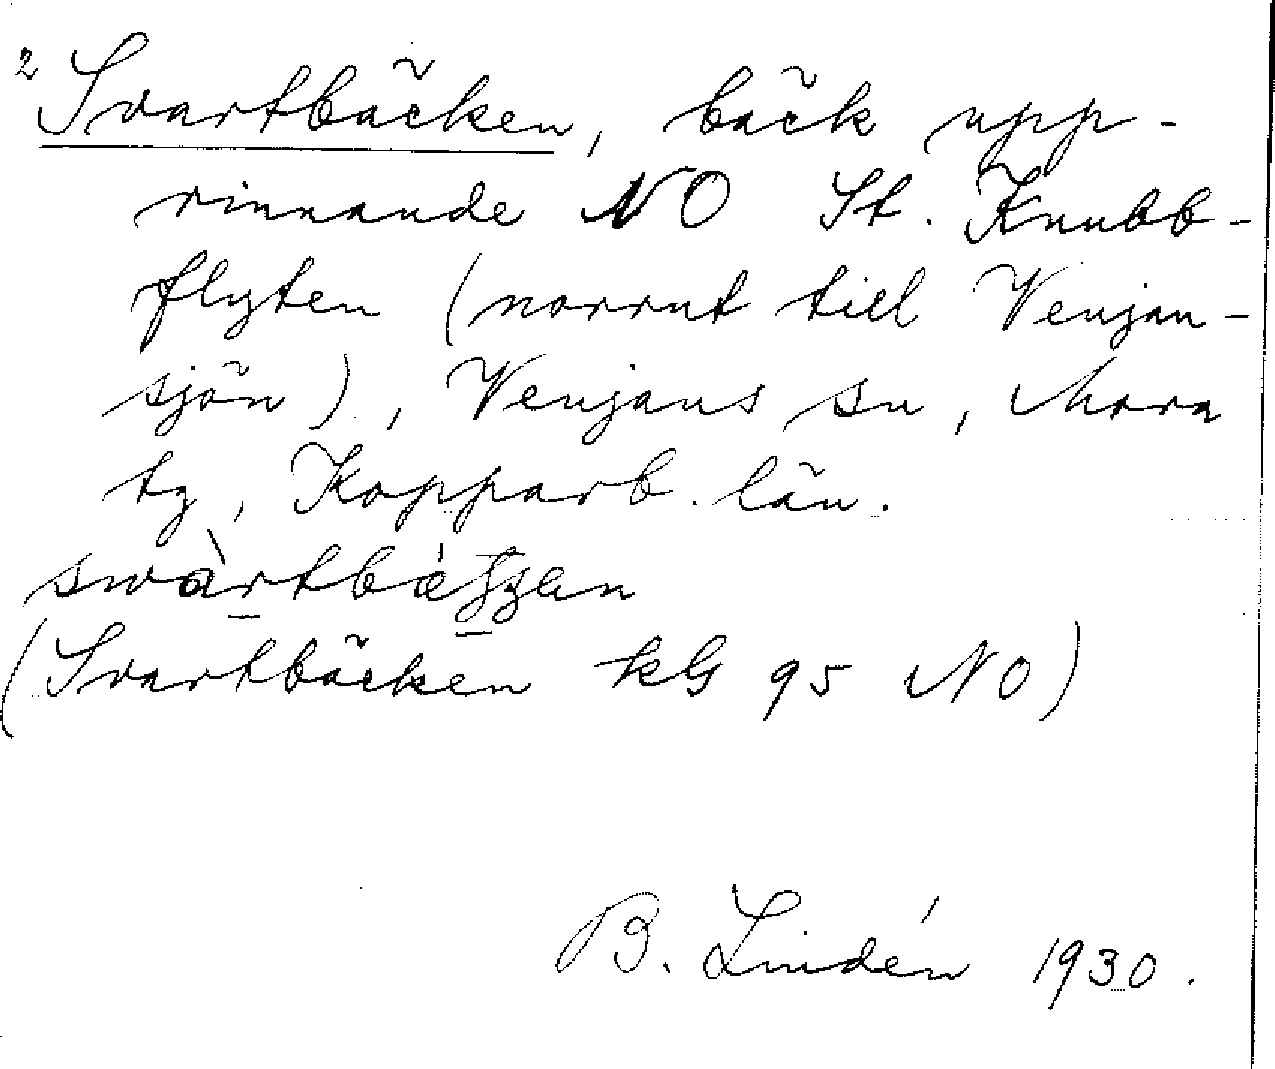 2 Svartbäcken, bäck upp-
rinnande NO St. Knubb-
flyten (norrut till Venjan-
sjön), Venjans sn, Mora
tg, Kopparb. län.
(Svartbäcken kG 95 NO)
B. Lindén 1930.